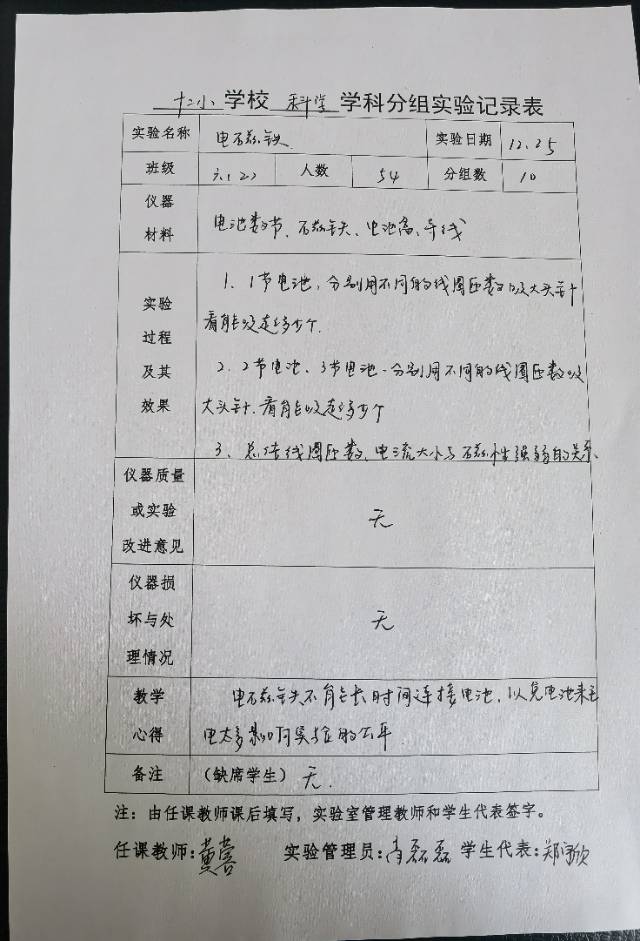 十二小学校 科学 学科分组实验记录表
实验名称 电磁铁 实验日期 12.25
班级 六.1 2) 人数 54 分组数 10
仪器材料 电池数节、磁铁、电池高、导线
实验过程及其效果
1. 1节电池,分别用不同的线圈匝数吸大头针
看能吸起多少个.
2. 2节电池、3节电池.分别用不同的线圈匝数吸
大头针.看能吸起多少个
3、总结线圈匝数、电流大小与磁性强弱的关系.
仪器质量或实验改进意见 无
仪器损坏与处理情况 无
教学心得 电磁铁不能长时间连接电池,以免电池耗
电太多影响实验的公平
备注 (缺席学生) 无.
注:由任课教师课后填写,实验室管理教师和学生代表签字。
任课教师: 实验管理员: 磊磊 学生代表: